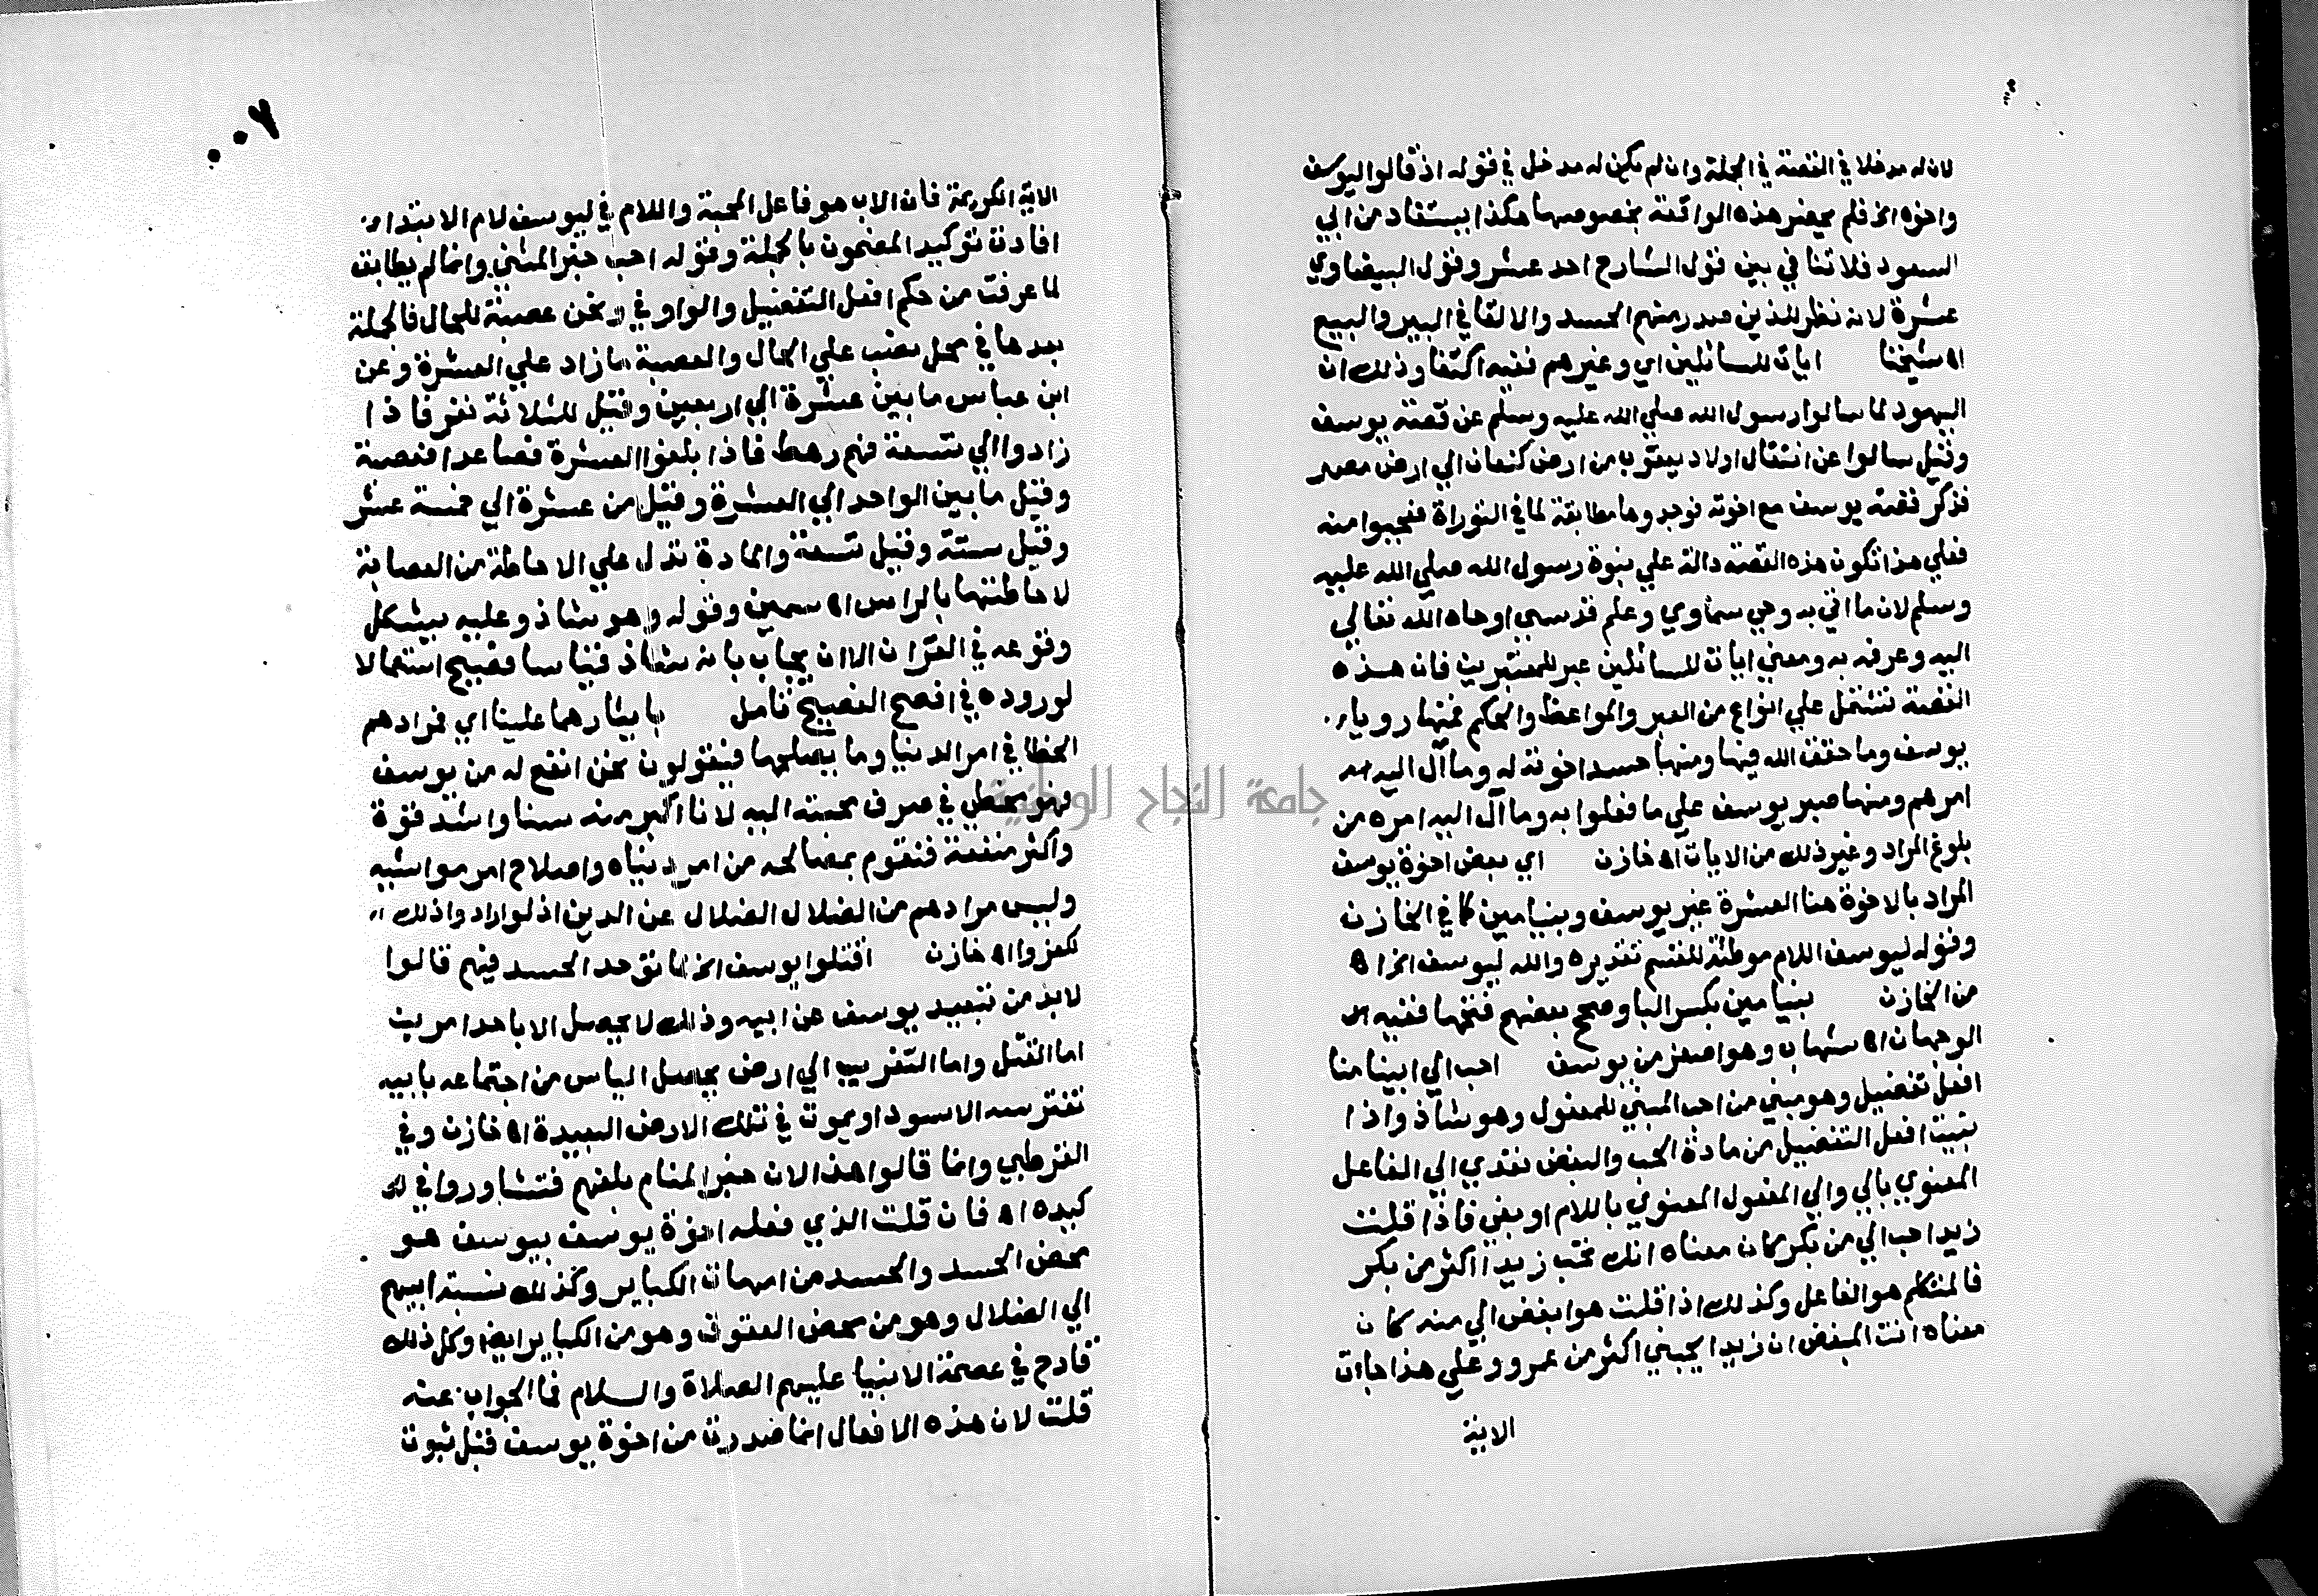 لانه له مدخلا في القصة في الجملة وان لم يكن له مدخل في قوله اذ قالوا ليوسف
واخوه الخ فلم يحضر هذه الواقعة بخصوصها هكذا يستفاد من ابي
السعود فلا تنافي بين قول الشارح احد عشر وقول البيضاوي
عشرة لانه نظر للذين صدر منهم الحسد والالقا في البير والبيع
اه شيخنا ايات للسائلين اي وغيرهم ففيه اكتفا وذلك ان
اليهود لما سالوا رسول الله صلي الله عليه وسلم عن قصة يوسف
وقيل سالوا عن انتقال اولاد يعقوب من ارض كنعان الي ارض مصر
فذكر قصة يوسف مع اخوته فوجدوها مطابقة لما في التوراة فعجبوا منه
فعلي هذا تكون هذه القصة دالة علي نبوة رسول الله صلي الله عليه
وسلم لان ما اتي به وحي سماوي وعلم قدسي اوحاه الله تعالي
اليه وعرفه به ومعني ايات للسائلين عبر للمعتبرين فان هذه
القصة تشتمل علي انواع من العبر والمواعظ والحكم فمنها رويا
يوسف وما حقق الله فيها ومنها حسد اخوته له وما آل اليه
امرهم ومنها صبر يوسف علي ما فعلوا به وما آل اليه امره من
بلوغ المراد وغير ذلك من الايات اه خازن اي بعض اخوة يوسف
المراد بالاخوة هنا العشرة غير يوسف وبنيامين كما في الخازن
وقوله ليوسف اللام موطئة للقسم تقديره والله ليوسف الخ اه
من الخازن بنيامين بكسر البا وصحح بعضهم فتحها ففيه
الوجهان اه شهاب وهو اصغر من يوسف احب الي ابينا منا
افعل تفضيل وهو مبني من احب المبني للمفعول وهو شاذ واذا
بنيت افعل التفضيل من مادة الحب والبغض تعدي الي الفاعل
المعنوي بالي والي المفعول المعنوي باللام او بفي فاذا قلت
زيد احب الي من بكر كان معناه انك تحب زيدا اكثر من بكر
فالمتكلم هو الفاعل وكذلك اذا قلت هو ابغض الي منه كان
معناه انت المبغض ان زيدا يحبني اكثر من عمرو وعلي هذا جاءت
الاية
٧٠٠
الاية الكريمة فان الاب هو فاعل المحبة واللام في ليوسف لام الابتداء
افادت توكيد المضمون بالجملة وقوله احب خبر المثني وانما لم يطابق
لما عرفت من حكم افعل التفضيل والواو في ونحن عصبة للحال فالجملة
بعدها في محل نصب علي الحال والعصبة ما زاد علي العشرة وعن
ابن عباس ما بين عشرة الي اربعين وقيل للثلاثة نفر فاذا
زادوا الي تسعة فهم رهط فاذا بلغوا العشرة فصاعدا فعصبة
وقيل ما بين الواحد الي العشرة وقيل من عشرة الي خمسة عشر
وقيل ستة وقيل تسعة والمادة تدل علي الاحاطة من العصابة
لاحاطتها بالراس اه سمين وقوله وهو شاذ وعليه يشكل
وقوعه في القران الا ان يجاب بانه شاذ قياسا فصيح استعمالا
لوروده في افصح الفصيح تامل بايثارهما علينا اي فمرادهم
الخطا في امر الدنيا وما يصلحها فيقولون نحن انفع له من يوسف
فهو مخطي في صرف محبته اليه لانا اكبر منه سنا واشد قوة
واكثر منفعة فنقوم بمصالحه من امر دنياه واصلاح امر مواشيه
وليس مرادهم من الضلال الضلال عن الدين اذ لو ارادوا ذلك
لكفروا اه خازن اقتلوا يوسف الخ لما توحد الحسد فيهم قالوا
لابد من تبعيد يوسف عن ابيه وذلك لا يحصل الا باحد امرين
اما القتل واما التغريب الي ارض يحصل الياس من اجتماعه بابيه
تفترسه الاسود او يموت في تلك الارض البعيدة اه خازن وفي
القرطبي وانما قالوا هذا لان خبر المنام بلغهم فتشاوروا في
كيده اه فان قلت الذي فعله اخوة يوسف بيوسف هو
محض الحسد والحسد من امهات الكباير وكذلك نسبة ابيهم
الي الضلال وهو من محض العقوق وهو من الكباير ايضا وكل ذلك
قادح في عصمة الانبيا عليهم الصلاة والسلام فما الجواب عنه
قلت لان هذه الافعال انما صدرت من اخوة يوسف قبل ثبوت
جامعة النجاح الوطنية